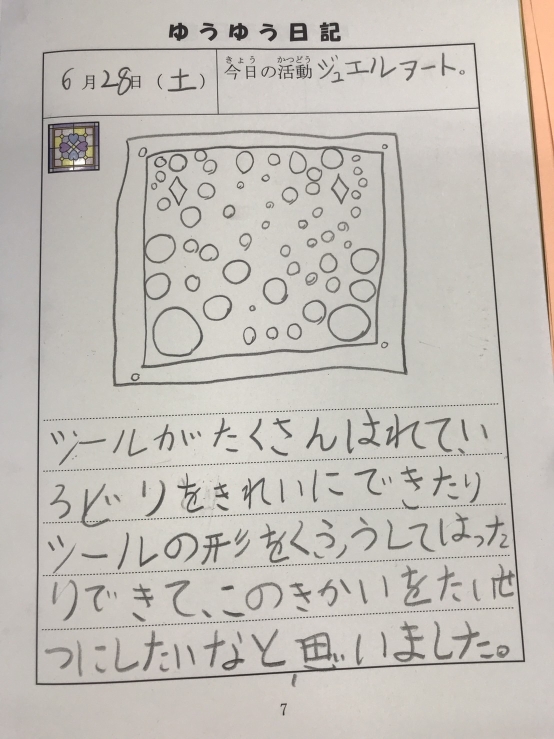 ゆうゆう日記
6月28日(土)
きょう かつどう
今日の活動 ジュエルアート。
シールがたくさんはれてい
ろどりをきれいにできたり
シールの形をくふうしてはった
りできて、このきかいをたいせ
つにしたいなと思いました。
7